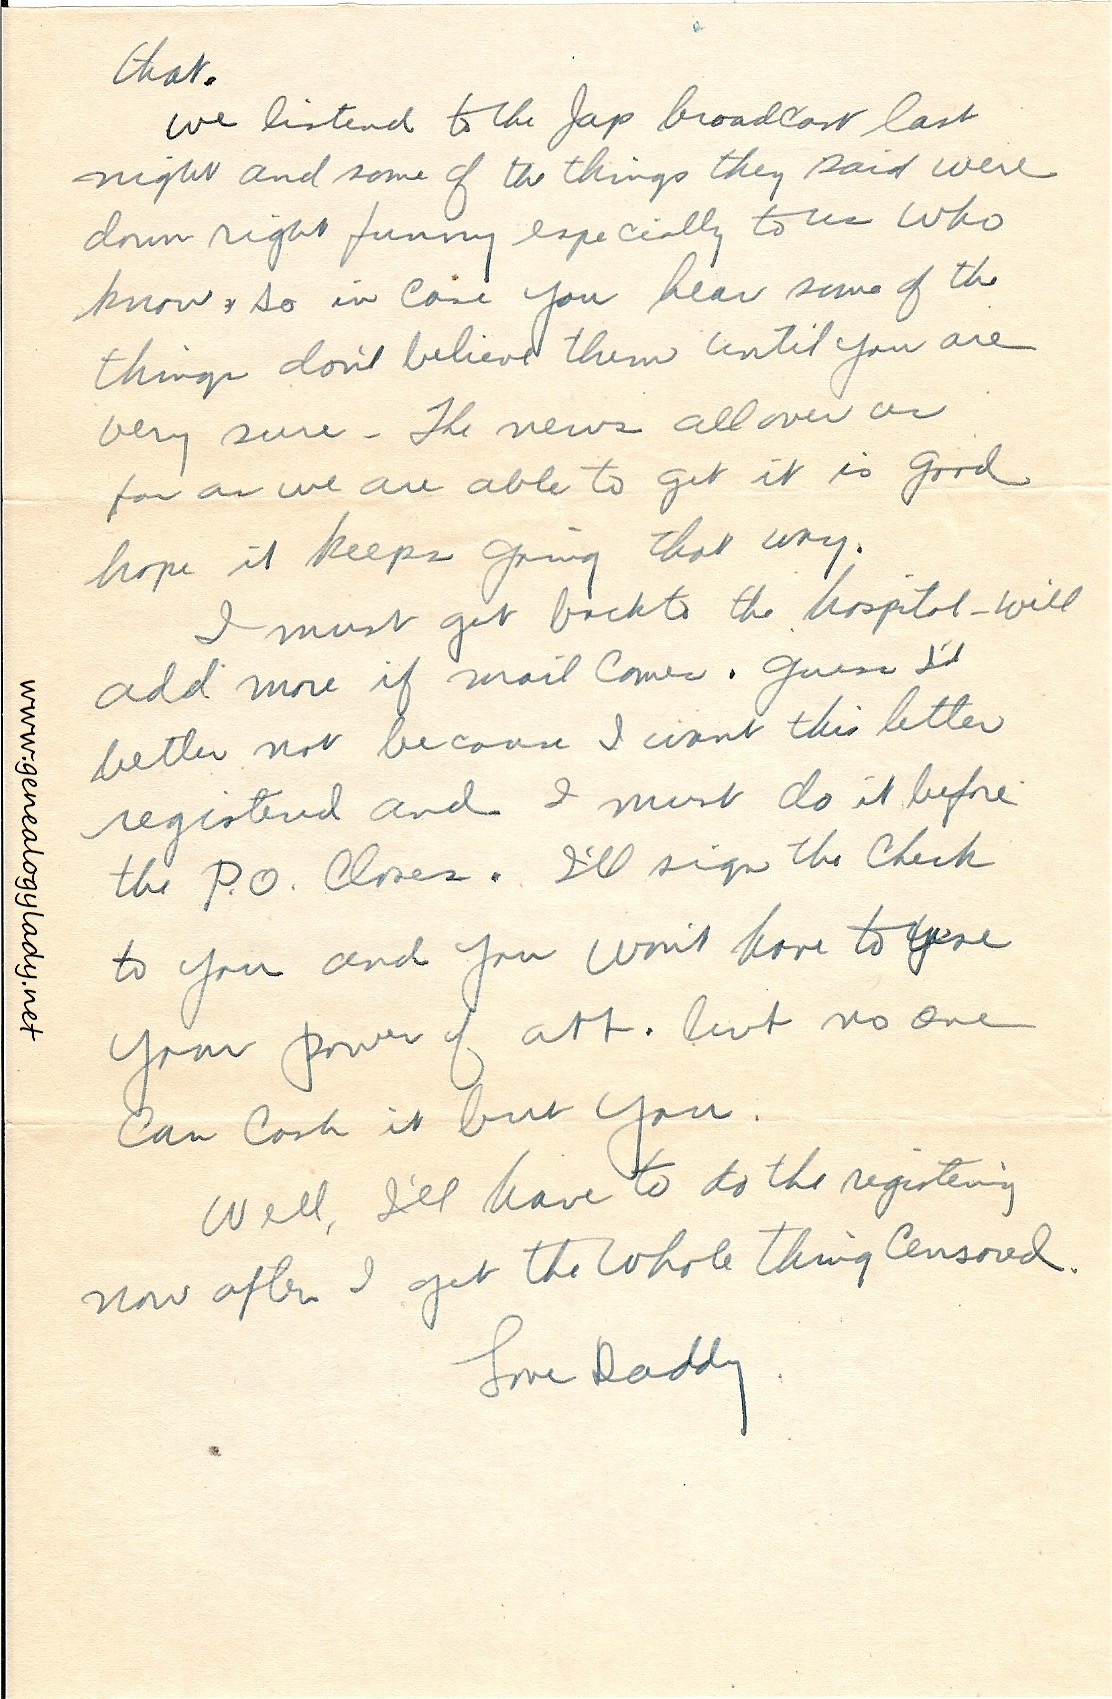 that.
we listend to the Jap broadcast last
night and some of the things they said were
down right funny especially to us who
know, so in case you hear some of the
things don't believe them until you are
very sure - The news all over as
far as we are able to get it is good
hope it keeps going that way.
I must get back to the hospital - will
add more if mail comes. Guess I'd
better not because I want this letter
registered and I must do it before
the P.O. Closes. I'll sign the check
to you and you won't have to use
your power of att. but no one
can cash it but you.
Well, I'll have to do the registering
now after I get the whole thing censored.
Love Daddy
www.genealogylady.net